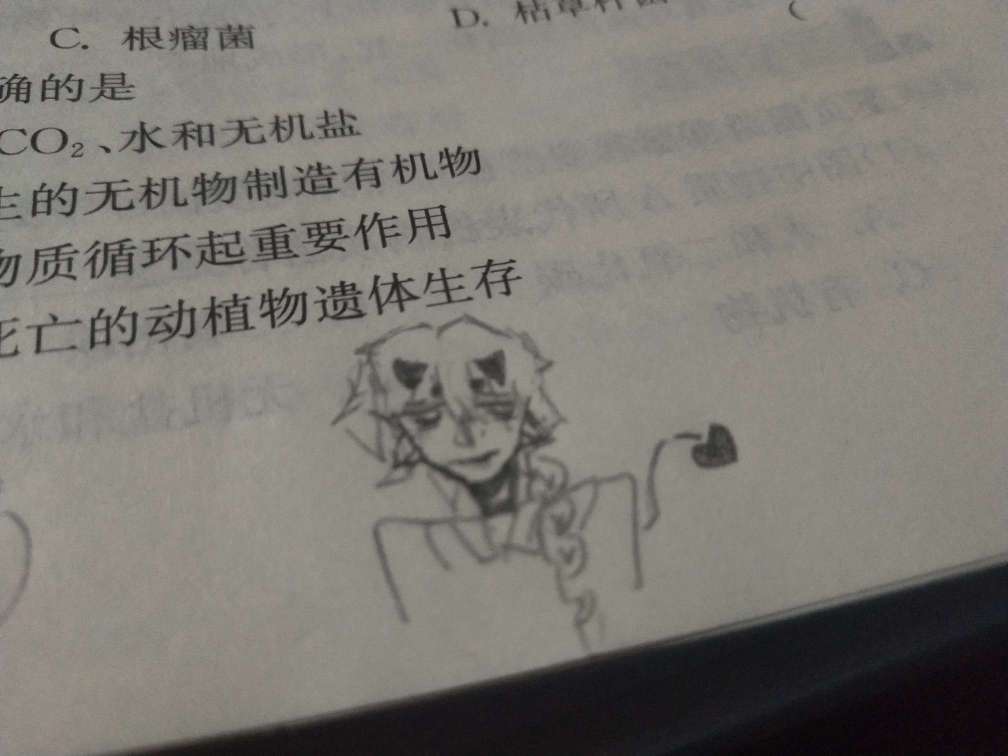 C. 根瘤菌 D. 枯草杆菌 (
确的是
CO₂、水和无机盐
生的无机物制造有机物
物质循环起重要作用
死亡的动植物遗体生存